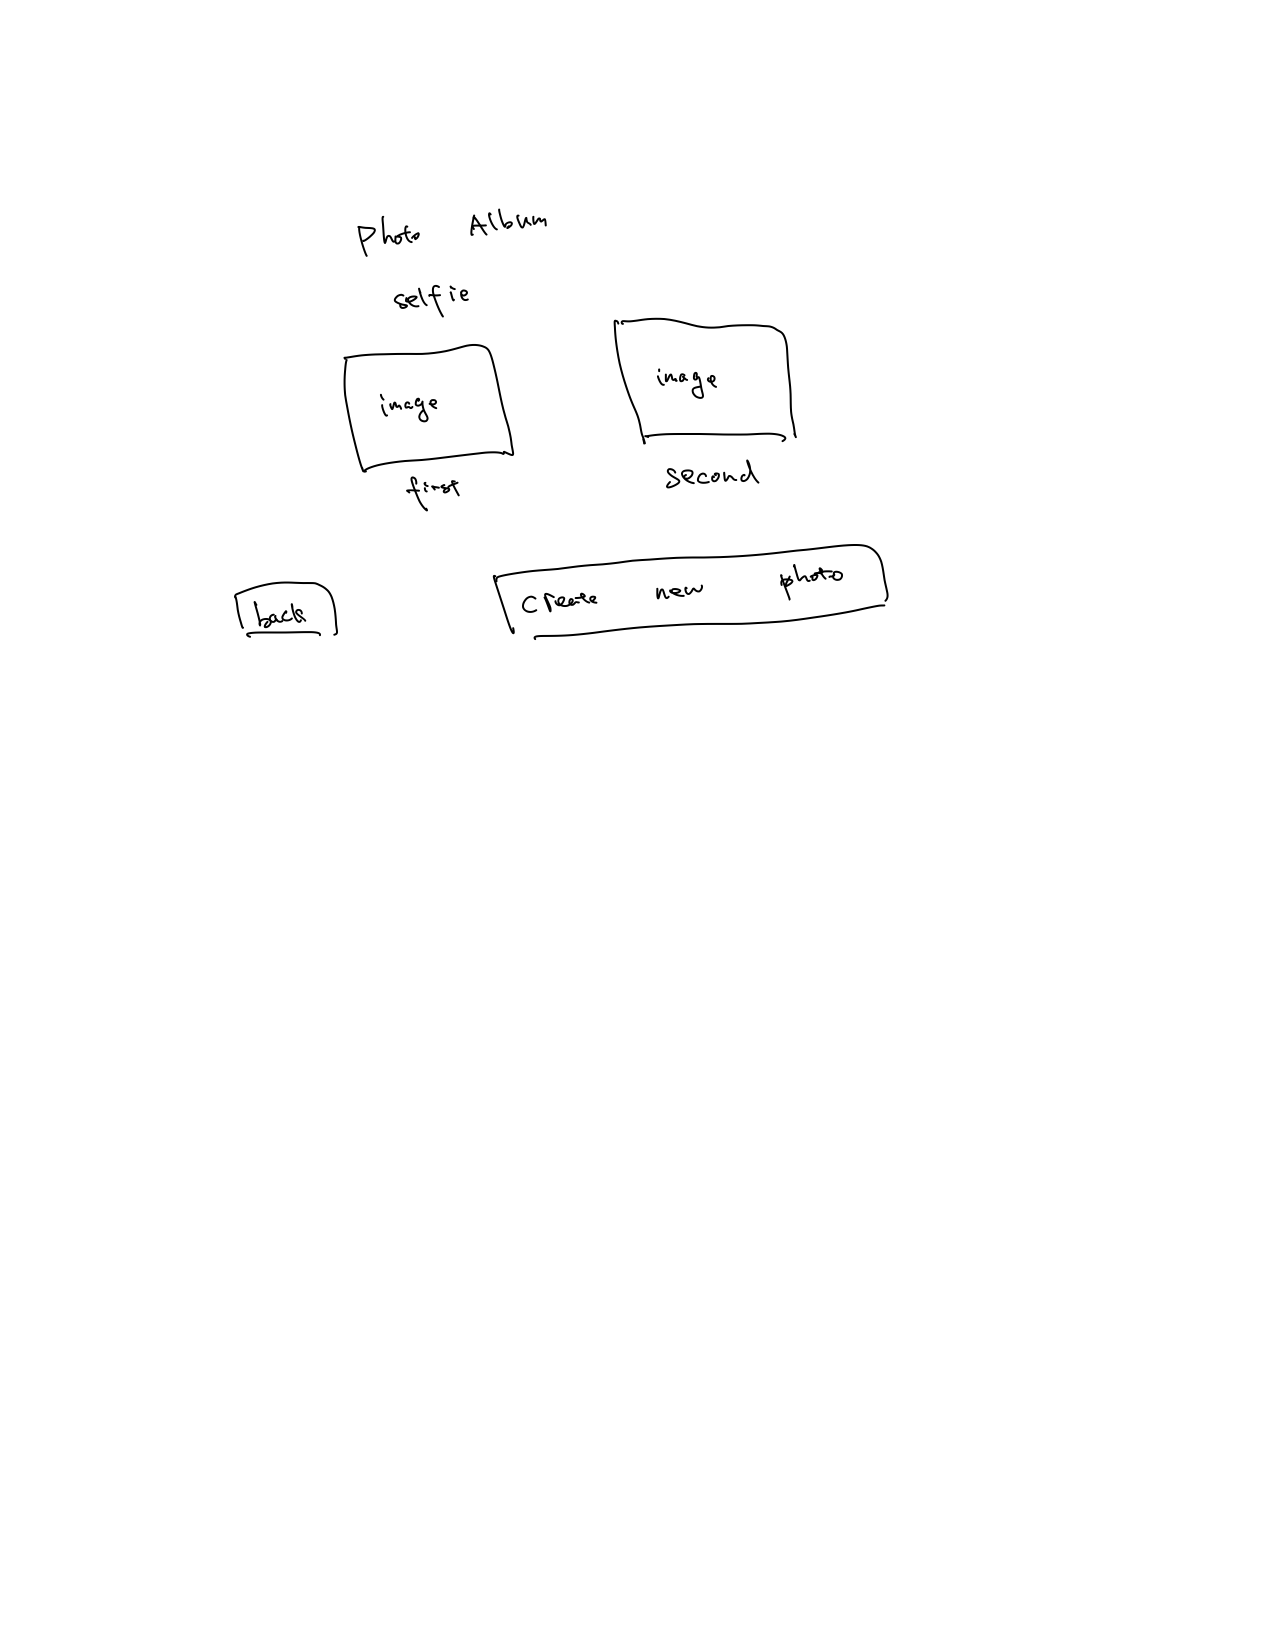 Photo Album
selfie
image image
first second
back create new photo